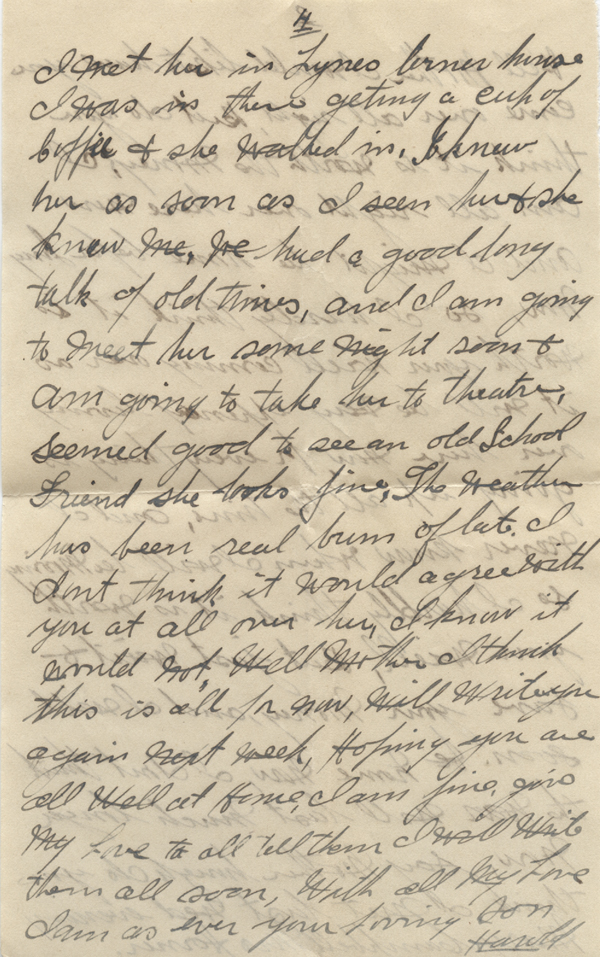 4
I met her in Lynes Corner house
I was in there geting a cup of
Coffie & she walked in. I knew
her as soon as I seen her & she
knew Me, We had a good long
talk of old times, and I am going
to Meet her some Night soon &
am going to take her to theatre,
seemed good to see an old School
Friend she looks fine, The weather
has been real bum of late. I
dont think it would agree With
you at all over her, I know it
would Not, Well Mother I think
this is all for now, Will Write you
again Next Week, Hoping you are
all Well at Home, I am fine, give
My Love to all tell them I Will Write
them all soon, With all My Love
I am as ever your Loving Son
Harold